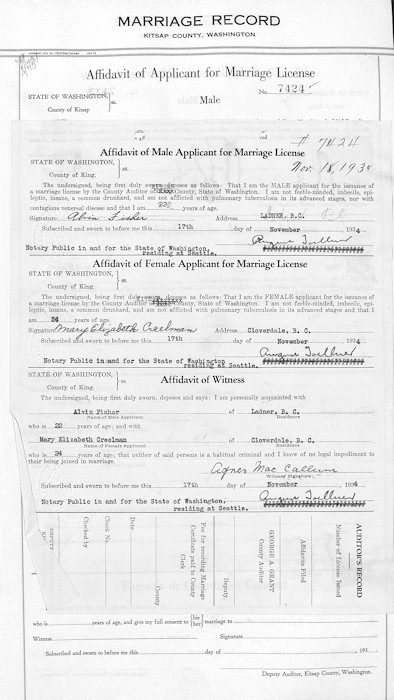 MARRIAGE RECORD
KITSAP COUNTY, WASHINGTON
Affidavit of Applicant for Marriage License
No. 7424
STATE OF WASHINGTON, } ss.
County of Kitsap
Male
# 7424
Affidavit of Male Applicant for Marriage License
STATE OF WASHINGTON, } ss.
County of King.
Nov. 18, 1934
The undersigned, being first duly sworn, deposes as follows: That I am the MALE applicant for the issuance of
a marriage license by the County Auditor of County, State of Washington. I am not feeble-minded, imbecile, epi-
leptic, insane, a common drunkard, and am not afflicted with pulmonary tuberculosis in its advanced stages, nor with
contagious venereal disease and that I am 22 years of age.
Signature Alvin Fisher Address LADNER, B.C.
Subscribed and sworn to before me this 17th day of November 1934
Notary Public in and for the State of Washington,
residing at Seattle.
Affidavit of Female Applicant for Marriage License
STATE OF WASHINGTON, } ss.
County of King.
The undersigned, being first duly sworn, deposes as follows: That I am the FEMALE applicant for the issuance of
a marriage license by the County Auditor of County, State of Washington. I am not feeble-minded, imbecile, epi-
leptic, insane, a common drunkard, and am not afflicted with pulmonary tuberculosis in its advanced stages and that I
am 24 years of age.
Signature Mary Elizabeth Creelman Address Cloverdale, B. C.
Subscribed and sworn to before me this 17th day of November 1934
Notary Public in and for the State of Washington
residing at Seattle.
Affidavit of Witness
STATE OF WASHINGTON, } ss.
County of King.
The undersigned, being first duly sworn, deposes and says: I am personally acquainted with
Alvin Fisher of Ladner, B. C.
Name of Male Applicant Residence
who is 22 years of age; and with
Mary Elizabeth Creelman of Cloverdale, B. C.
Name of Female Applicant Residence
who is 24 years of age; that neither of said persons is a habitual criminal and I know of no legal impediment to
their being joined in marriage.
Agnes Mac Callum
Witness' Signature
Subscribed and sworn to before me this 17th day of November 1934
Notary Public in and for the State of Washington,
residing at Seattle.
AUDITOR'S RECORD
Number of License Issued
Affidavits Filed
GEORGE A. GRANT
County Auditor.
Deputy.
Fee for recording Marriage
Certificate paid to County
Clerk
County
Date
Check No.
Checked by
DEPUTY
who is years of age, and give my full consent to {his/her} marriage to
Witness Signature
Subscribed and sworn to before me this day of , 191
Deputy Auditor, Kitsap County, Washington.